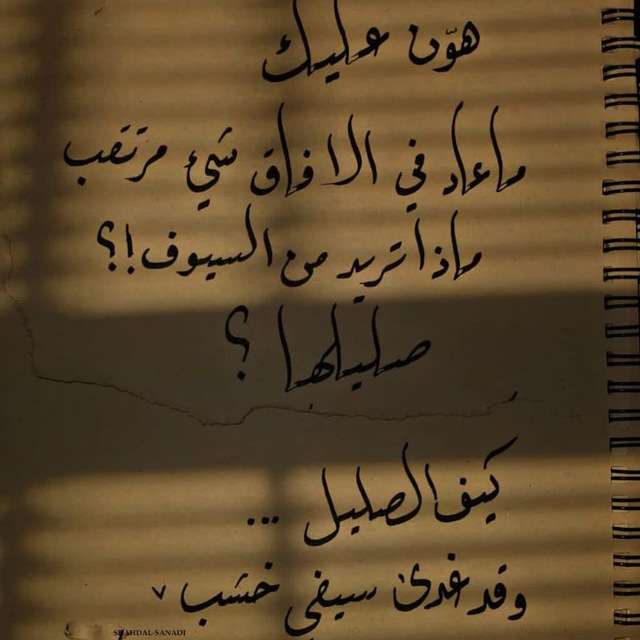 هوّن عليك
ماعاد في الافاق شيء مرتقب
ماذا تريد من السيوف!؟
صليلها؟
كيف الصليل ...
وقد غدى سيفي خشب
SHAHDAL-SANADI